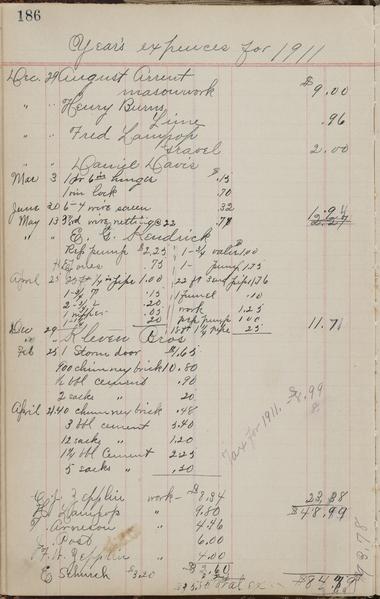 186
Year's expences for 1911
Dec. 29 August Arrent
masonwork $9.00
" " Henry Burns
Lime .96
" " Fred Lampop
Gravel 2.00
" " Daniel Davis
Mar 3 1 pr 6 in hinges $ .15
1 rim lock .70
June 20 6-4 wire screen .32
May 13 3 yd wire netting @ 22 .77
" " E. G. Kendrick
Rep pump $2.25 1- 3/4 valve 1.00
.75 1- pump 1.75
April 25 ft 1 1/4 pipe 1.00 22 ft 3 in pipe 1.76
.15 1 funnel .10
.20 work 1.25
.05 rep pump 1.00
.20 1 1/4 pipe .25 11.71
Dec 29 Kleven Bros
Feb 25 1 Storm door $1.65
900 chimney brick 10.80
1/2 bbl cement .90
2 sacks " .20
April 21 40 chimney brick .48
3 bbl cement 5.40
12 sacks " 1.20
1 1/4 bbl cement 2.25
5 sacks " .50
Tax for 1911. $8.99
23.38
C. J. Zepplin work - $8.34 $48.99
Lampop " 9.80
J. Arneson " 4.46
J. Post " 6.00
F. W. Zepplin " 4.00
E Schurck $3.20 $32.60